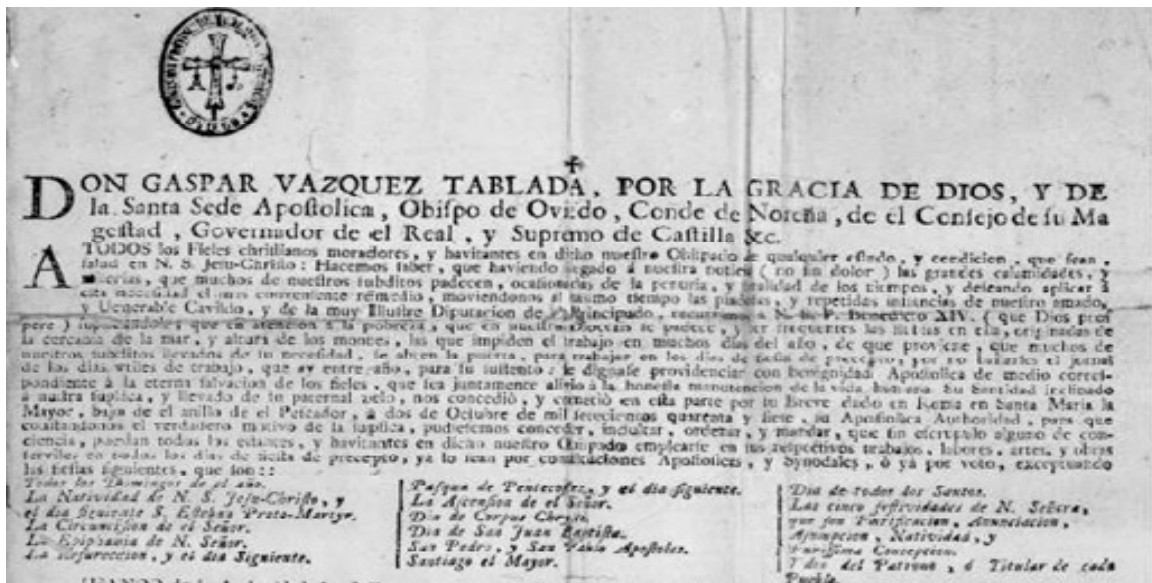 DON GASPAR VAZQUEZ TABLADA, POR LA GRACIA DE DIOS, Y DE
la Santa Sede Apostolica, Obispo de Oviedo, Conde de Noreña, de el Consejo de su Ma
gestad, Governador de el Real, y Supremo de Castilla &c.
A TODOS los Fieles christianos moradores, y havitantes en dicho nuestro Obispado de qualquier estado, y condicion, que sean,
salud en N. S. Jesu-Christo: Hacemos saber, que haviendo llegado á nuestra noticia (no sin dolor) las grandes calamidades, y
miserias, que muchos de nuestros subditos padecen, ocasionadas de la penuria, y de los tiempos, y deseando aplicar á
esta necesidad el mas conveniente remedio, moviendonos al mismo tiempo las piadosas, y repetidas instancias de nuestro amado,
y Venerable Cavildo, y de la muy Illustre Diputacion de Principado, recurrimos á N. S. P. Benedicto XIV. (que Dios pros
pere) suplicandole; que en atencion á la pobreza, que en nuestra Diocesis se padece, y ser frequentes las en ella, originadas de
la cercania de la mar, y altura de los montes, las que impiden el trabajo en muchos dias del año, de que proviene, que muchos de
nuestros subditos llevados de su necesidad, se abren la puerta, para trabajar en los dias de fiesta de precepto, por no el jornal
de los dias utiles de trabajo, que ay entre año, para su sustento: se dignase providenciar con benignidad Apostolica de medio corres-
pondiente á la eterna salvacion de los fieles, que sea juntamente alivio á la honesta manutencion de la vida humana. Su Santidad inclinado
á nuestra suplica, y llevado de su paternal zelo, nos concedió, y cometió en esta parte por su Breve dado en Roma en Santa Maria la
Mayor, bajo de el anillo de el Pescador, á dos de Octubre de mil setecientos quarenta y siete, su Apostolica Authoridad, para que
constandonos el verdadero motivo de la suplica, pudiesemos conceder, indultar, ordenar, y mandar, que sin escrupulo alguno de con-
ciencia, puedan todos los estantes, y havitantes en dicho nuestro Obispado emplearse en sus respectivos trabajos, labores, artes, y obras
serviles en todos los dias de fiesta de precepto, ya lo sean por constituciones Apostolicas, y Synodales, ó yá por voto, exceptuando
las fiestas siguientes, que son::
Todos los Domingos de el año.
La Natividad de N. S. Jesu-Christo, y
el dia siguiente S. Esteban Proto-Martyr.
La Circuncision de el Señor.
La Epiphania de N. Señor.
La Resurreccion, y el dia Siguiente.
Pasqua de Pentecostes, y el dia siguiente.
La Ascension de el Señor.
Dia de Corpus Christi.
Dia de San Juan Baptista.
San Pedro, y San Pablo Apostoles.
Santiago el Mayor.
Dia de todos los Santos.
Las cinco festividades de N. Señora,
que son Purificacion, Anunciacion,
Assumpcion, Natividad, y
Purissima Concepcion.
del Patrono, ó Titular de cada
Pueblo.